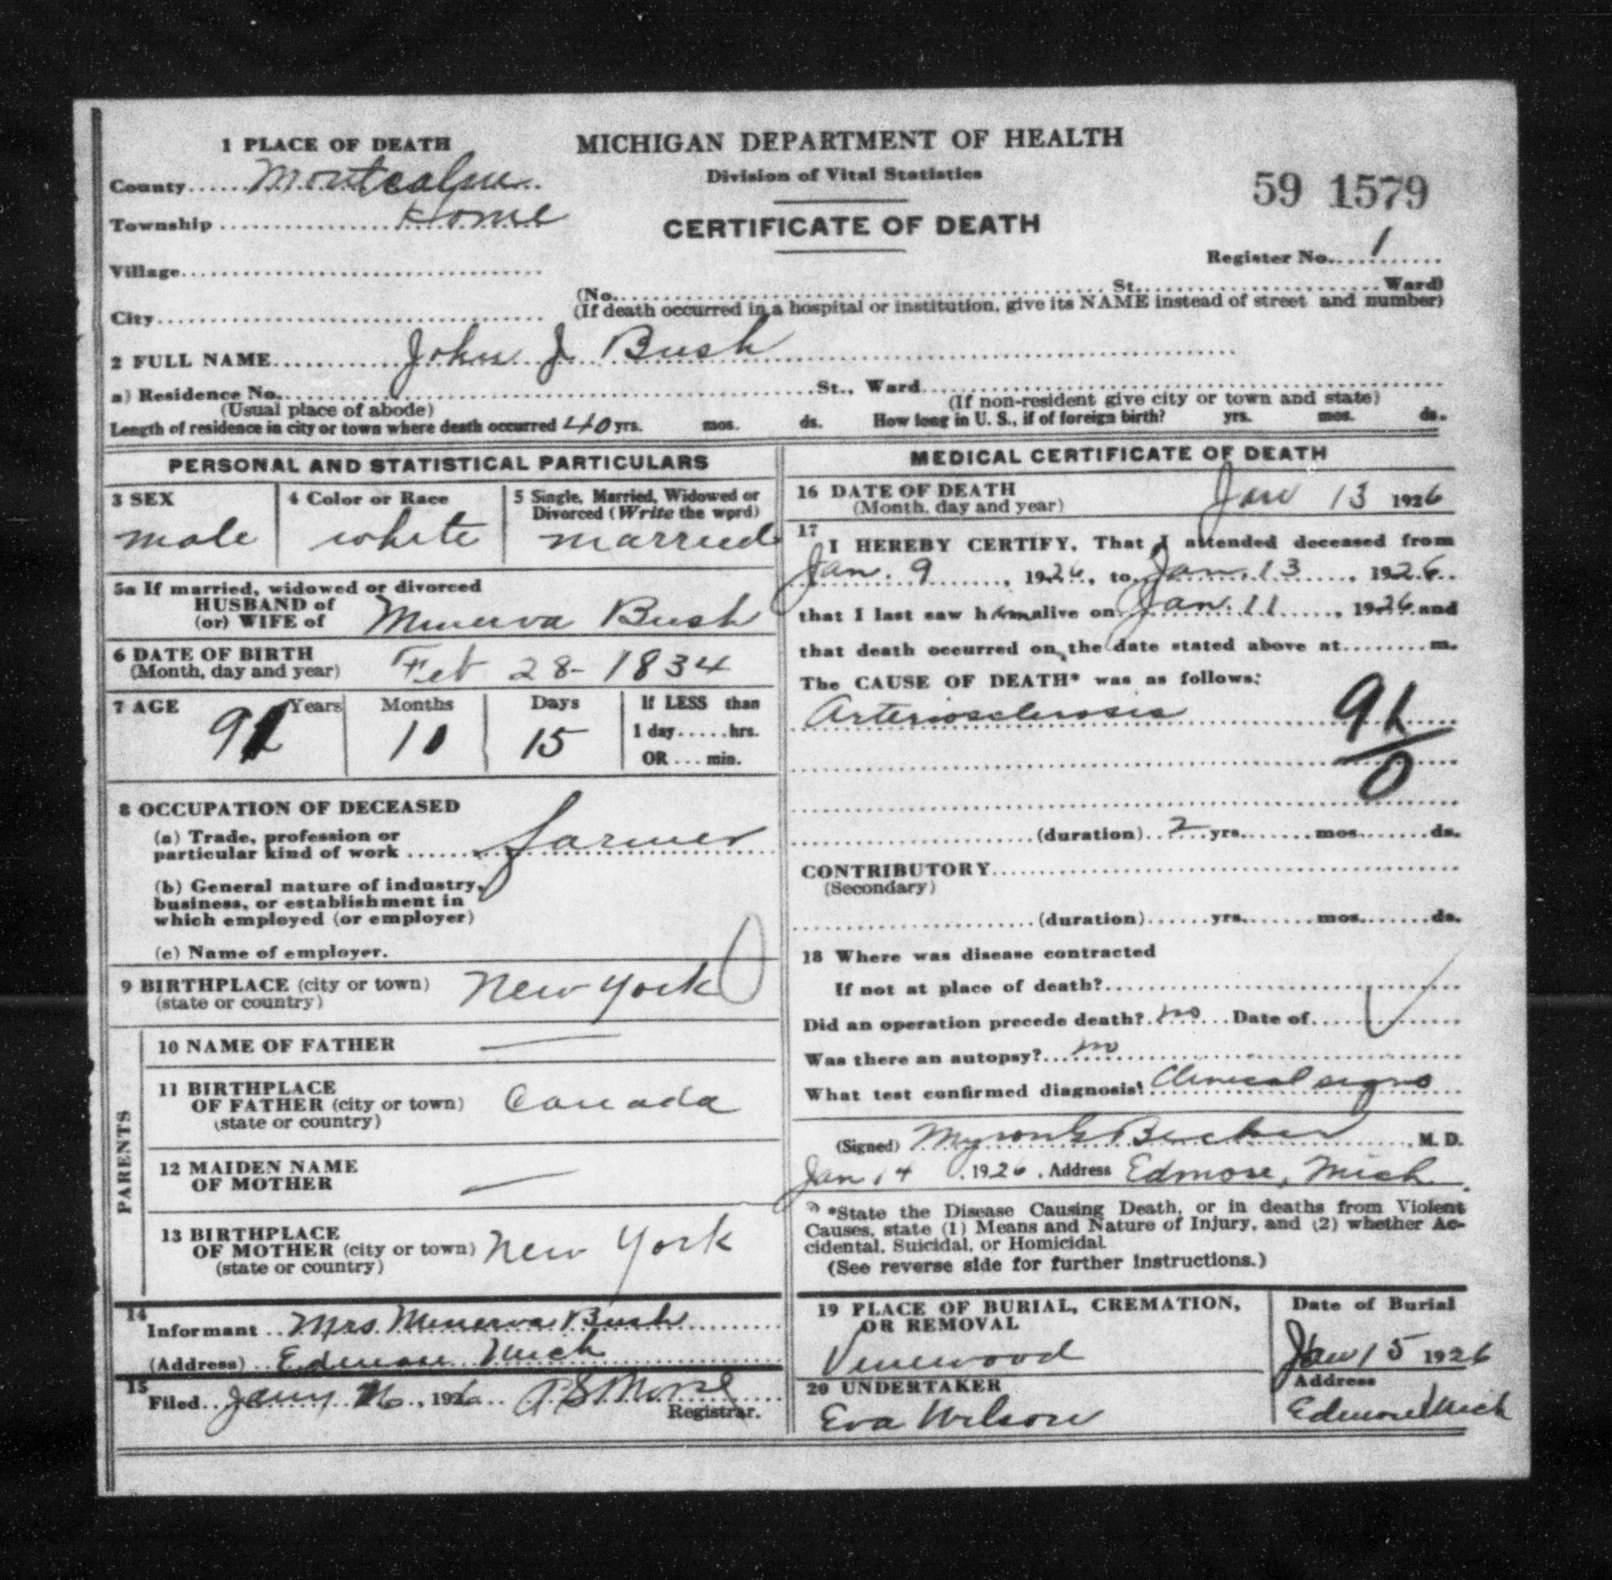 1 PLACE OF DEATH
MICHIGAN DEPARTMENT OF HEALTH
Division of Vital Statistics
County Montcalm
59 1579
Township Home
CERTIFICATE OF DEATH
Register No. 1
Village
(No. St. Ward)
City
(If death occurred in a hospital or institution, give its NAME instead of street and number)
2 FULL NAME John J Bush
a) Residence No. St., Ward
(Usual place of abode) (If non-resident give city or town and state)
Length of residence in city or town where death occurred 40 yrs. mos. ds. How long in U. S., if of foreign birth? yrs. mos. ds.
PERSONAL AND STATISTICAL PARTICULARS
3 SEX 4 Color or Race 5 Single, Married, Widowed or
Divorced (Write the word)
male white married
5a If married, widowed or divorced
HUSBAND of
(or) WIFE of Minerva Bush
6 DATE OF BIRTH
(Month, day and year) Feb 28 - 1834
7 AGE Years Months Days If LESS than
91 10 15 1 day hrs.
OR min.
8 OCCUPATION OF DECEASED
(a) Trade, profession or
particular kind of work farmer
(b) General nature of industry,
business, or establishment in
which employed (or employer)
(c) Name of employer.
9 BIRTHPLACE (city or town)
(state or country) New York
PARENTS
10 NAME OF FATHER —
11 BIRTHPLACE
OF FATHER (city or town) Canada
(state or country)
12 MAIDEN NAME
OF MOTHER —
13 BIRTHPLACE
OF MOTHER (city or town) New York
(state or country)
14
Informant Mrs Minerva Bush
(Address) Edmore Mich
15
Filed Jany 1926 Registrar.
MEDICAL CERTIFICATE OF DEATH
16 DATE OF DEATH
(Month, day and year) Jan 13 1926
17
I HEREBY CERTIFY, That I attended deceased from
Jan. 9, 1926, to Jan. 13, 1926
that I last saw him alive on Jan. 11, 1926 and
that death occurred on the date stated above at m.
The CAUSE OF DEATH* was as follows:
Arteriosclerosis 91
0
(duration) 2 yrs. mos. ds.
CONTRIBUTORY
(Secondary)
(duration) yrs. mos. ds.
18 Where was disease contracted
If not at place of death?
Did an operation precede death? no Date of
Was there an autopsy? no
What test confirmed diagnosis? Clinical signs
(Signed) Myron G Becker M. D.
Jan 14, 1926, Address Edmore, Mich.
*State the Disease Causing Death, or in deaths from Violent
Causes, state (1) Means and Nature of Injury, and (2) whether Ac-
cidental, Suicidal, or Homicidal.
(See reverse side for further instructions.)
19 PLACE OF BURIAL, CREMATION,
OR REMOVAL
Vinewood
Date of Burial
Jan 15 1926
20 UNDERTAKER
Eva Wilson
Address
Edmore Mich